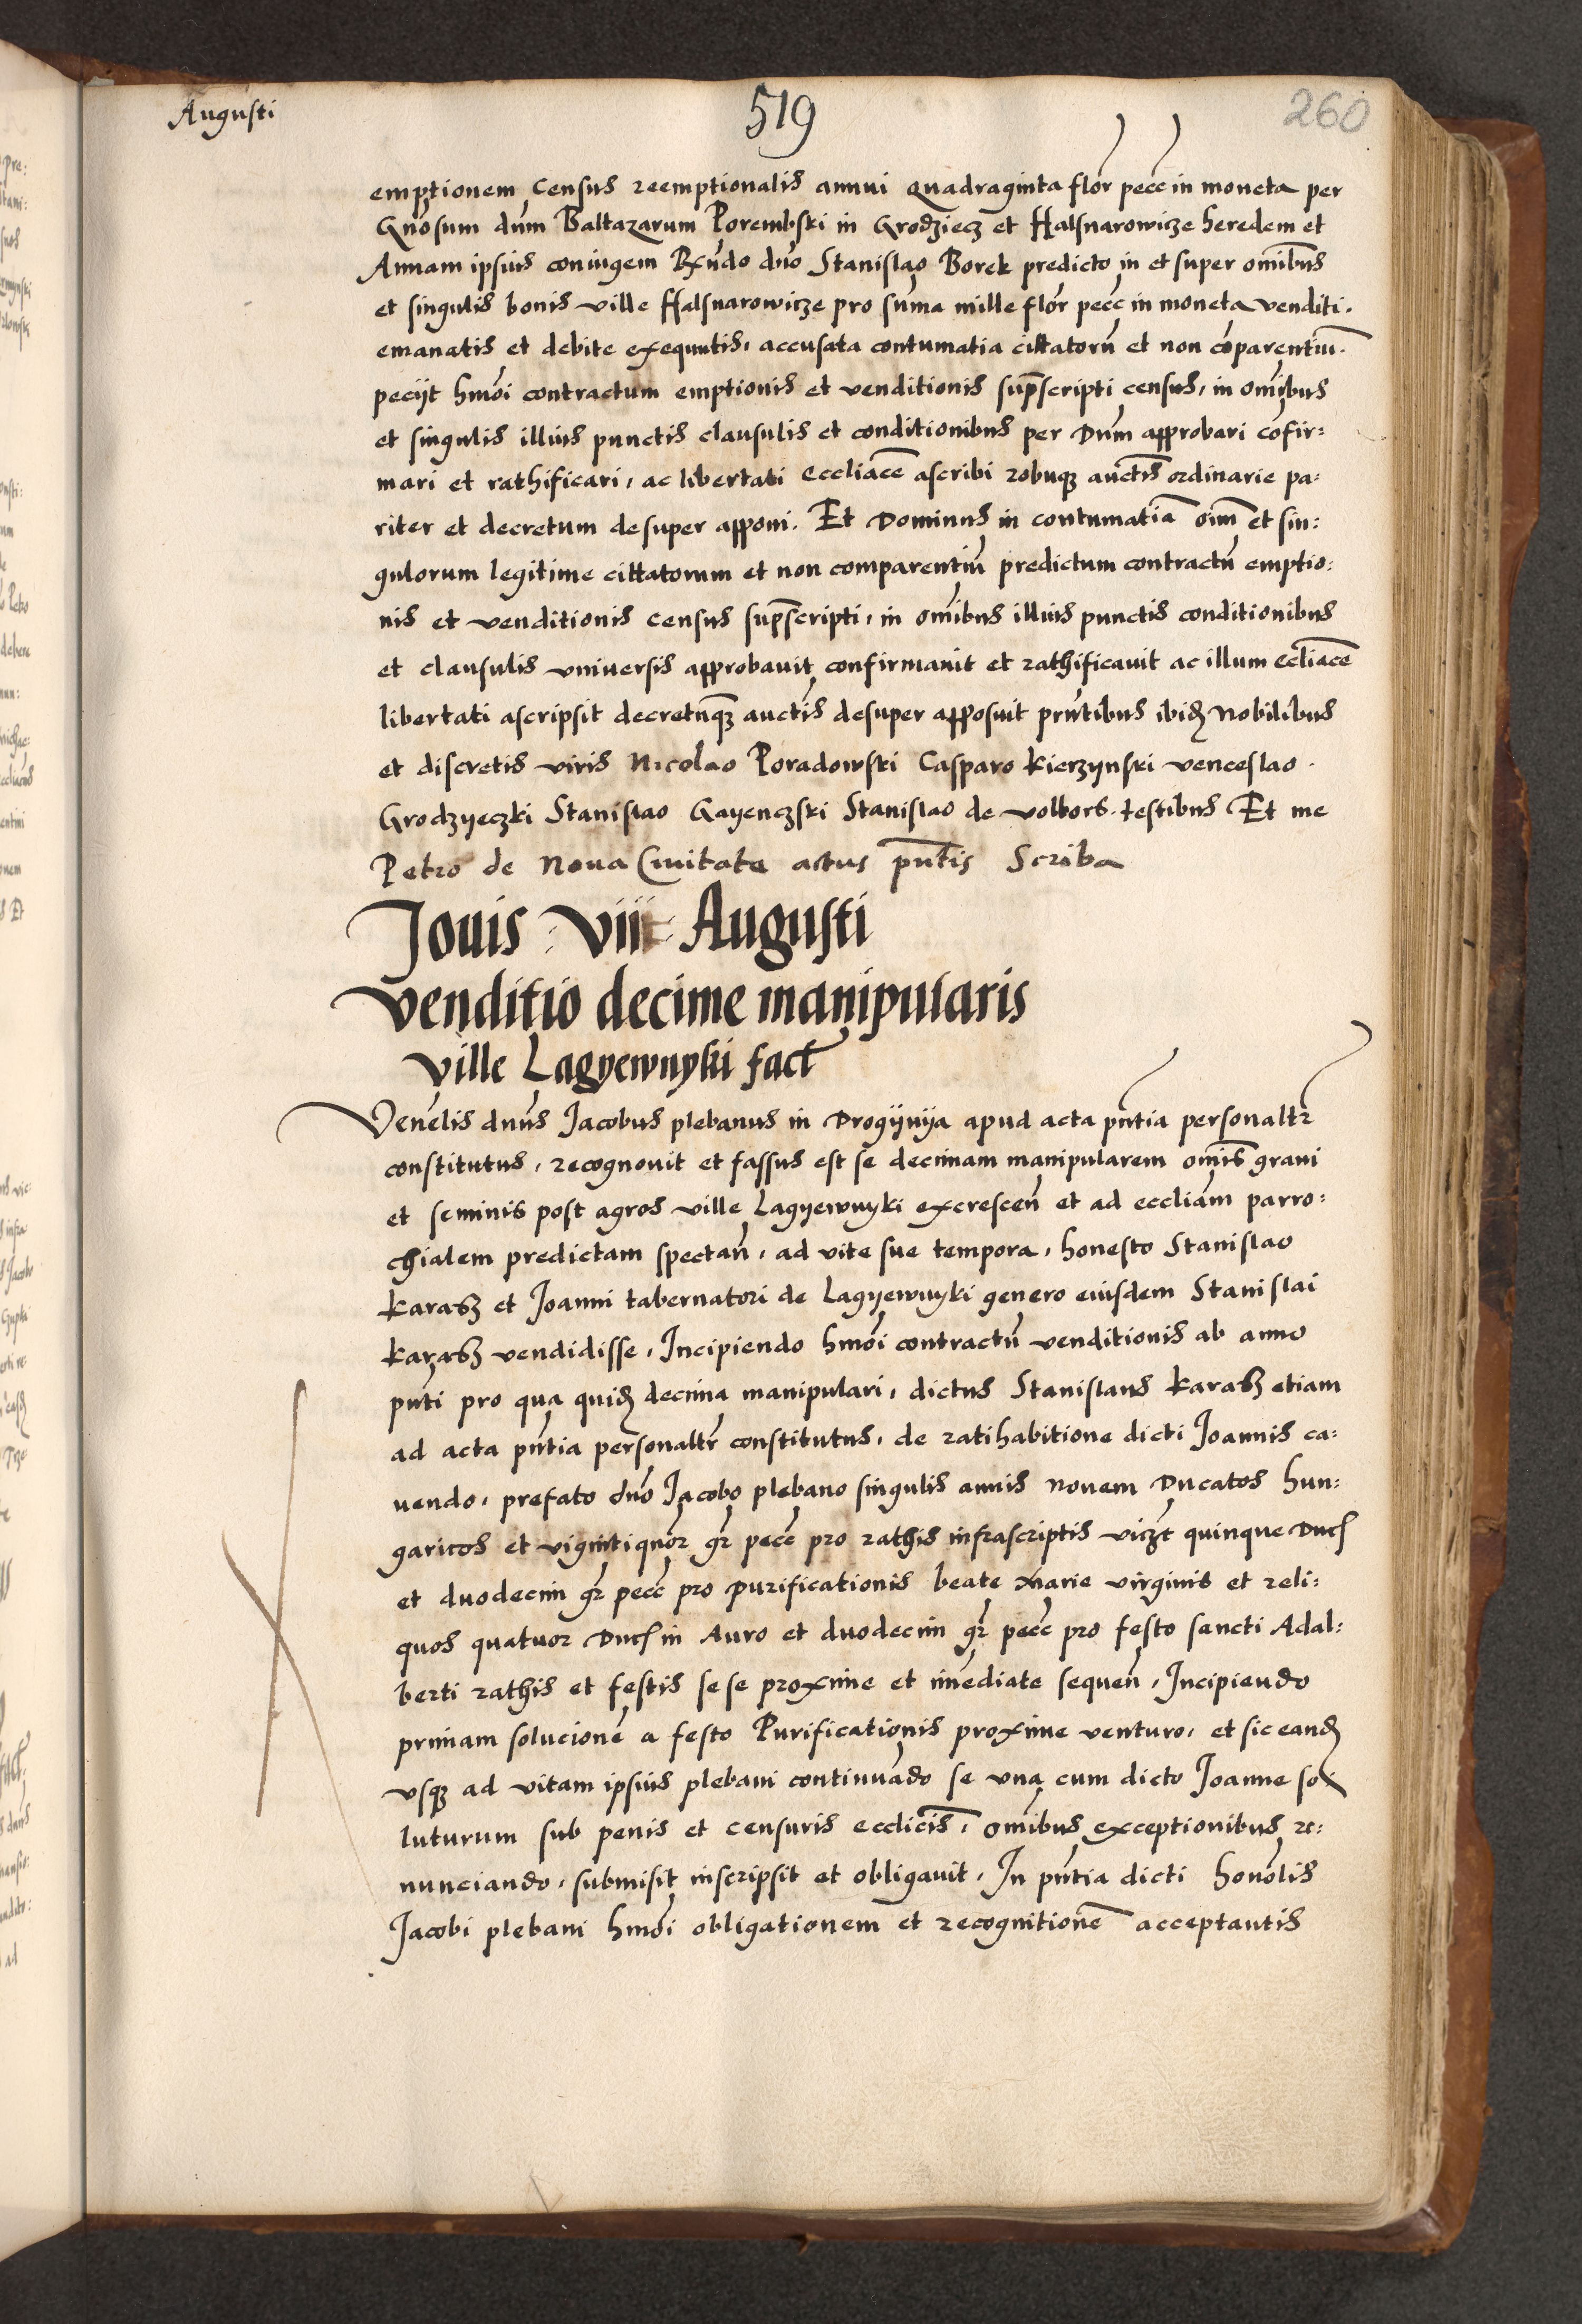 Augusti
519
260
emptionem census reemptionalis annui quadraginta flor pecc in moneta per
Gnosum dnm Baltazarum Porembski in Grodziecz et Halsnarowicze heredem et
Annam ipsius coniugem Rxndo dno Stanislao Borek predicto in et super omibus
et singulis bonis ville Halsnarowicze pro suma mille flor pecc in moneta venditi.
emanatis et debite exequutis, accusata contumatia cittatoru et non coparentiu.
peciit hmoi contractum emptionis et venditionis supscripti census, in omibus
et singulis illius punctis clausulis et conditionibus per Dnm approbari cofir:
mari et rathificari, ac libertati eccliace ascribi robuqz auctis ordinarie pa:
riter et decretum desuper apponi. Et Dominus in contumatia oim et sin:
gulorum legitime cittatorum et non comparentiu predictum contractu emptio:
nis et venditionis census supscripti, in omibus illius punctis conditionibus
et clausulis universis approbavit confirmauit et rathificauit ac illum eccliace
libertati ascripsit decretuqz auctis desuper apposuit pntibus ibidz Nobilibus
et discretis viris Nicolao Poradowski Casparo Kierzynski venceslao.
Grodzyeczki Stanislao Gayenczski Stanislao de volbors. testibus Et me
Petro de Noua Civitate actus pntis Scriba
Jouis viii Augusti
Venditio decime manipularis
ville Lagyewnyki fact
Venelis dnus Jacobus plebanus in Drogijnija apud acta pntia personaltr
constitutus, recognouit et fassus est se decimam manipularem omis grani
et seminis post agros ville Lagyewnyki excrescen et ad eccliam parro:
chialem predictam spectan, ad vite sue tempora, honesto Stanislao
Karasz et Joanni tabernatori de Lagyewnyki genero eiusdem Stanislai
Karasz vendidisse, Incipiendo hmoi contractu venditionis ab anno
pnti pro qua quidz decima manipulari, dictus Stanislaus Karasz etiam
ad acta pntia personaltr constitutus, de ratihabitione dicti Joannis ca:
uendo, prefato dno Jacobo plebano singulis annis Nouem Ducatos hun:
garicos et vigintiquor gr pecc pro rathis infrascriptis viczt quinque Duc
et duodecim gr pecc pro purificationis beate Marie virginis et reli:
quos quatuor Duc in Auro et duodecim gr pecc pro festo sancti Adal:
berti rathis et festis sese proxime et imediate sequen, Incipiendo
primam solucione a festo Purificationis proxime venturo, et sic eandz
vsqz ad vitam ipsius plebani continuado se vna cum dicto Joanne so
luturum sub penis et censuris ecclicis, omibus exceptionibus re:
nunciando, submisit inscripsit et obligauit, In pntia dicti honolis
Jacobi plebani hmoi obligationem et recognitione acceptantis